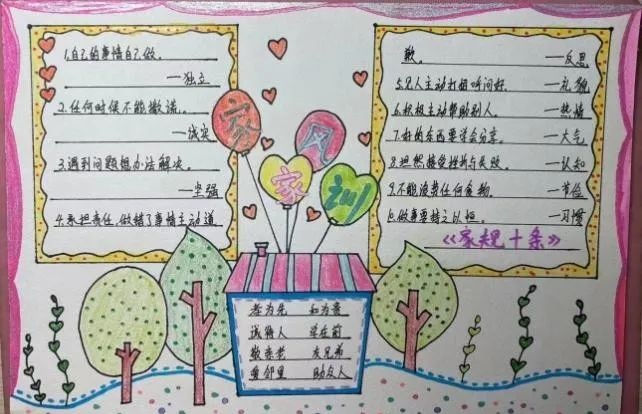 1.自己的事情自己做。
—独立
2.任何时候不能撒谎。
—诚实
3.遇到问题想办法解决。
—坚强
4.承担责任,做错了事情主动道
歉。 —反思
5.见人主动打招呼问好。 —礼貌
6.积极主动帮助别人。 —热情
7.好的东西要学会分享。 —大气
8.坦然接受挫折与失败。 —认知
9.不能浪费任何食物。 —节俭
10.做事要持之以恒。 —习惯
《家规十条》
家风
家训
孝为先 和为贵
诚待人 学在前
敬长老 友兄弟
爱邻里 助众人